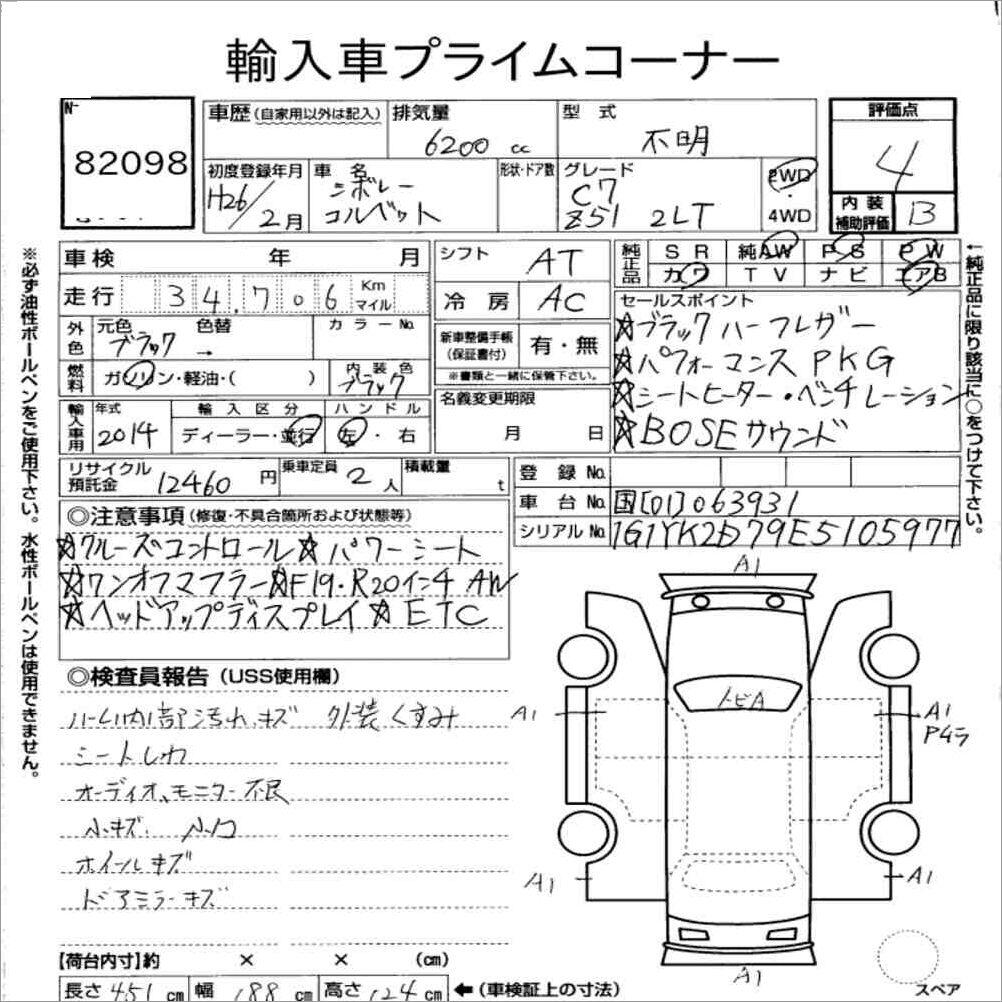 輸入車プライムコーナー
No.
82098
車歴(自家用以外は記入)
排気量
6200 cc
型 式
不明
評価点
4
初度登録年月
H26/2月
車 名
シボレー
コルベット
形状・ドア数
グレード
C7
Z51 2LT
2WD
・
4WD
内装
補助評価
B
※必ず油性ボールペンをご使用下さい。水性ボールペンは使用できません。
車検 年 月
シフト
AT
純正品
SR 純AW PS PW
カワ TV ナビ エアB
←純正品に限り該当に○をつけて下さい。
走行 34,706 Km マイル
冷房
AC
セールスポイント
☆ブラックハーフレザー
☆パフォーマンスPKG
☆シートヒーター・ベンチレーション
☆BOSEサウンド
外色
元色
ブラック
色替
→
カラーNo.
新車整備手帳
(保証書付)
有・無
※書類と一緒に保管下さい。
燃料
ガソリン・軽油・( )
内装色
ブラック
名義変更期限
月 日
輸入車用
年式
2014
輸入区分
ディーラー・並行
ハンドル
左・右
リサイクル
預託金
12460 円
乗車定員
2人
積載量
t
登録 No.
車台 No.
国[01]063931
シリアル No.
1G1YK2D79E5105977
◎注意事項(修復・不具合箇所および状態等)
☆クルーズコントロール☆パワーシート
☆ワンオフマフラー☆F19・R20インチ AW
☆ヘッドアップディスプレイ☆ETC
◎検査員報告(USS使用欄)
ルーム内部汚れ、キズ 外装くすみ
シートしわ
オーディオ、モニター不良
小キズ、小凹
ホイールキズ
ドアミラーキズ
A1
トビA
A1
A1
Pムラ
A1
A1
A1
スペア
【荷台内寸】約 × × (cm)
長さ 451 cm 幅 188 cm 高さ 124 cm ←(車検証上の寸法)